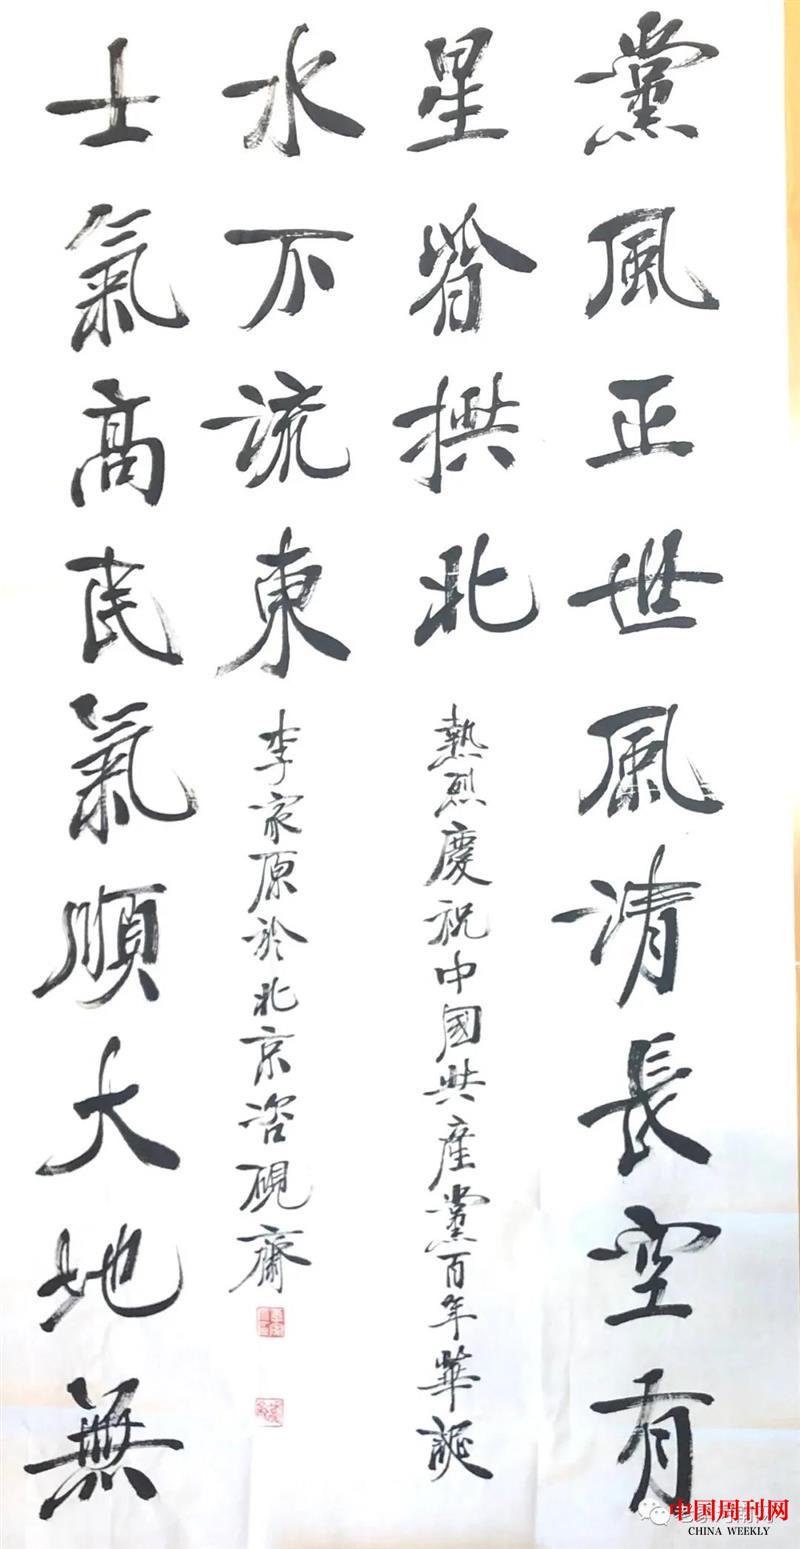 黨風正世風清長空有
星皆拱北
熱烈慶祝中國共産黨百年華誕
士氣高民氣順大地無
水不流東
李家原於北京咨硯齋
中国周刊网
CHINA WEEKLY